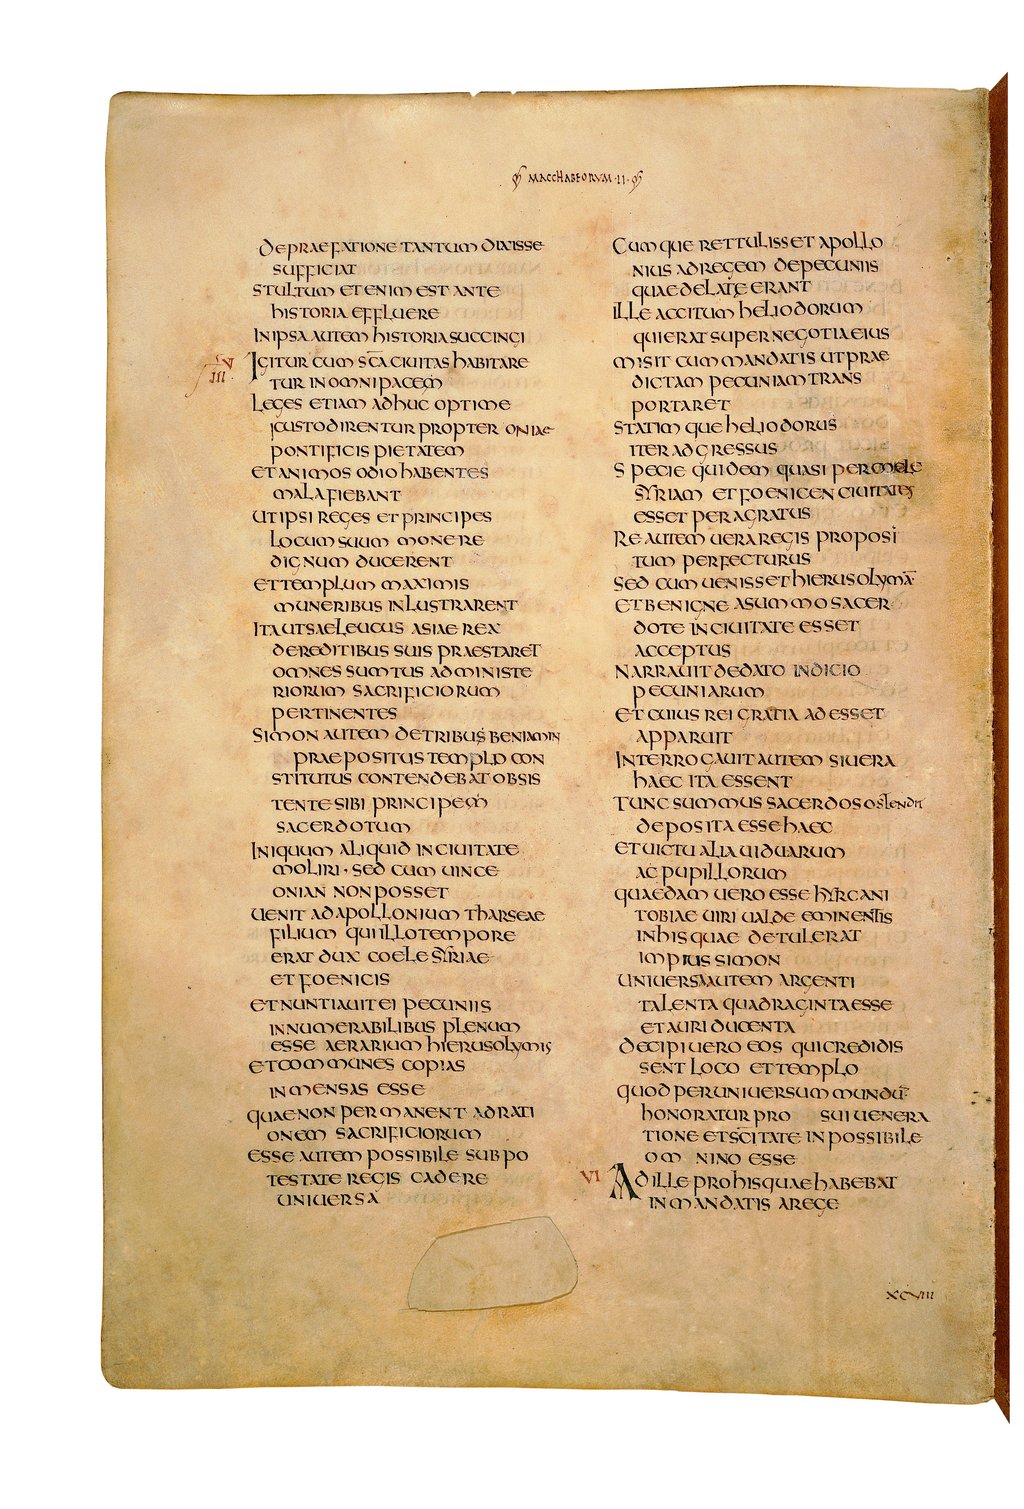 MACCHABEORUM · II ·
DEPRAEFATIONE TANTUM DIXISSE
SUFFICIAT
STULTUM ETENIM EST ANTE
HISTORIA EFFLUERE
IN IPSA AUTEM HISTORIA SUCCINGI
V
III
IGITUR CUM SC̅A CIUITAS HABITARE
TUR IN OMNI PACEM
LEGES ETIAM ADHUC OPTIME
CUSTODIRENTUR PROPTER ONIAE
PONTIFICIS PIETATEM
ET ANIMOS ODIO HABENTES
MALA FIEBANT
UT IPSI REGES ET PRINCIPES
LOCUM SUUM MONERE
DIGNUM DUCERENT
ET TEMPLUM MAXIMIS
MUNERIBUS INLUSTRARENT
ITA UT SAELEUCUS ASIAE REX
DEREDITIBUS SUIS PRAESTARET
OMNES SUMTUS ADMINISTE
RIORUM SACRIFICIORUM
PERTINENTES
SIMON AUTEM DE TRIBUS BENIAMIN
PRAEPOSITUS TEMPLO CON
STITUTUS CONTENDEBAT OBSIS
TENTE SIBI PRINCIPEM
SACERDOTUM
INIQUUM ALIQUID IN CIUITATE
MOLIRI · SED CUM UINCE
ONIAN NON POSSET
UENIT AD APOLLONIUM THARSEAE
FILIUM QUI ILLO TEMPORE
ERAT DUX COELE SYRIAE
ET FOENICIS
ET NUNTIAUIT EI PECUNIIS
INNUMERABILIBUS PLENUM
ESSE AERARIUM HIERUSOLYMIS
ET COMMUNES COPIAS
INMENSAS ESSE
QUAE NON PERMANENT AD RATI
ONEM SACRIFICIORUM
ESSE AUTEM POSSIBILE SUB PO
TESTATE REGIS CADERE
UNIUERSA
CUMQUE RETTULISSET APOLLO
NIUS AD REGEM DE PECUNIIS
QUAE DELATE ERANT
ILLE ACCITUM HELIODORUM
QUI ERAT SUPER NEGOTIA EIUS
MISIT CUM MANDATIS UT PRAE
DICTAM PECUNIAM TRANS
PORTARET
STATIMQUE HELIODORUS
ITER ADGRESSUS
SPECIE QUIDEM QUASI PER COELE
SYRIAM ET FOENICEN CIUITATES
ESSET PERAGRATUS
RE AUTEM UERA REGIS PROPOSI
TUM PERFECTURUS
SED CUM UENISSET HIERUSOLYMA̅
ET BENIGNE A SUMMO SACER
DOTE IN CIUITATE ESSET
ACCEPTUS
NARRAUIT DE DATO INDICIO
PECUNIARUM
ET CUIUS REI GRATIA ADESSET
APPARUIT
INTERROGAUIT AUTEM SI UERA
HAEC ITA ESSENT
TUNC SUMMUS SACERDOS OSTENDIT
DEPOSITA ESSE HAEC
ET UICTUALIA UIDUARUM
AC PUPILLORUM
QUAEDAM UERO ESSE HYRCANI
TOBIAE UIRI UALDE EMINENTIS
IN HIS QUAE DETULERAT
IMPIUS SIMON
UNIUERSA AUTEM ARGENTI
TALENTA QUADRAGINTA ESSE
ET AURI DUCENTA
DECIPI UERO EOS QUI CREDIDIS
SENT LOCO ET TEMPLO
QUOD PER UNIUERSUM MUNDU̅
HONORATUR PRO SUI UENERA
TIONE ET SC̅ITATE INPOSSIBILE
OMNINO ESSE
VI
AD ILLE PRO HIS QUAE HABEBAT
IN MANDATIS A REGE
XCVIII